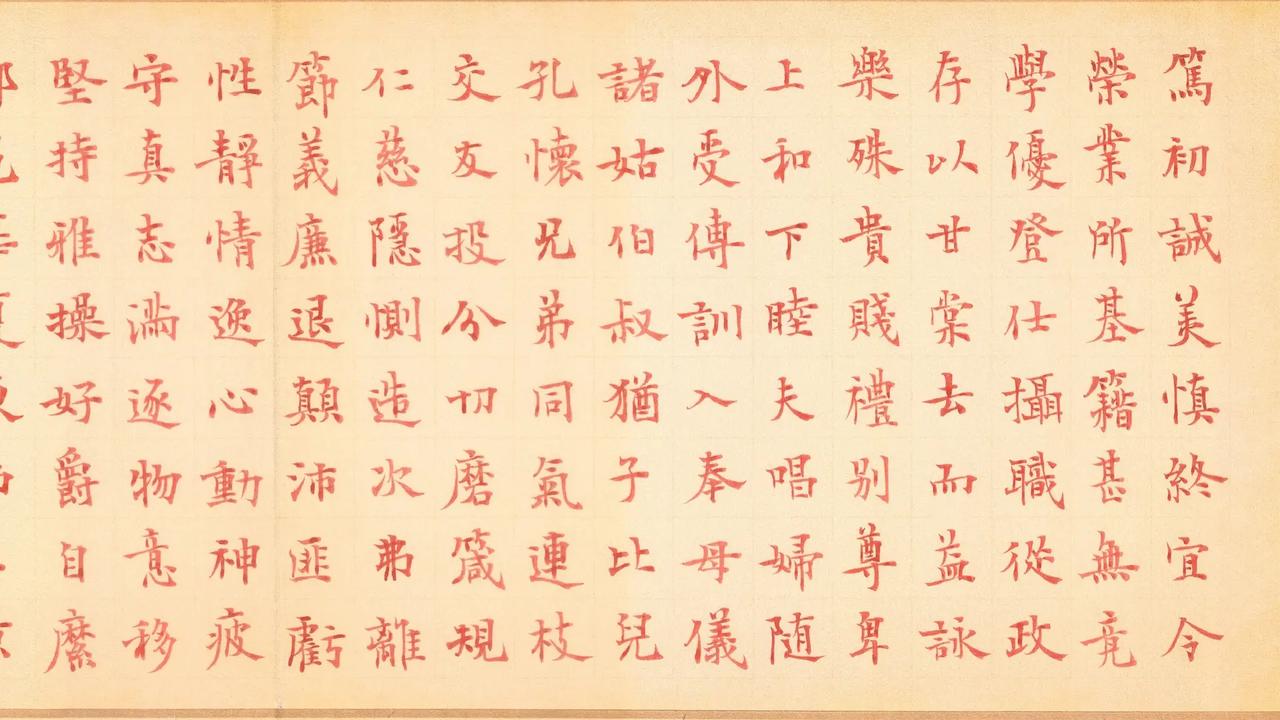 篤初誠美慎終宜令
榮業所基籍甚無竟
學優登仕攝職從政
存以甘棠去而益詠
樂殊貴賤禮别尊卑
上和下睦夫唱婦随
外受傅訓入奉母儀
諸姑伯叔猶子比兒
孔懷兄弟同氣連枝
交友投分切磨箴規
仁慈隱惻造次弗離
節義廉退顛沛匪虧
性靜情逸心動神疲
守真志滿逐物意移
堅持雅操好爵自縻